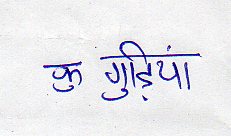 कु गुड़ियां